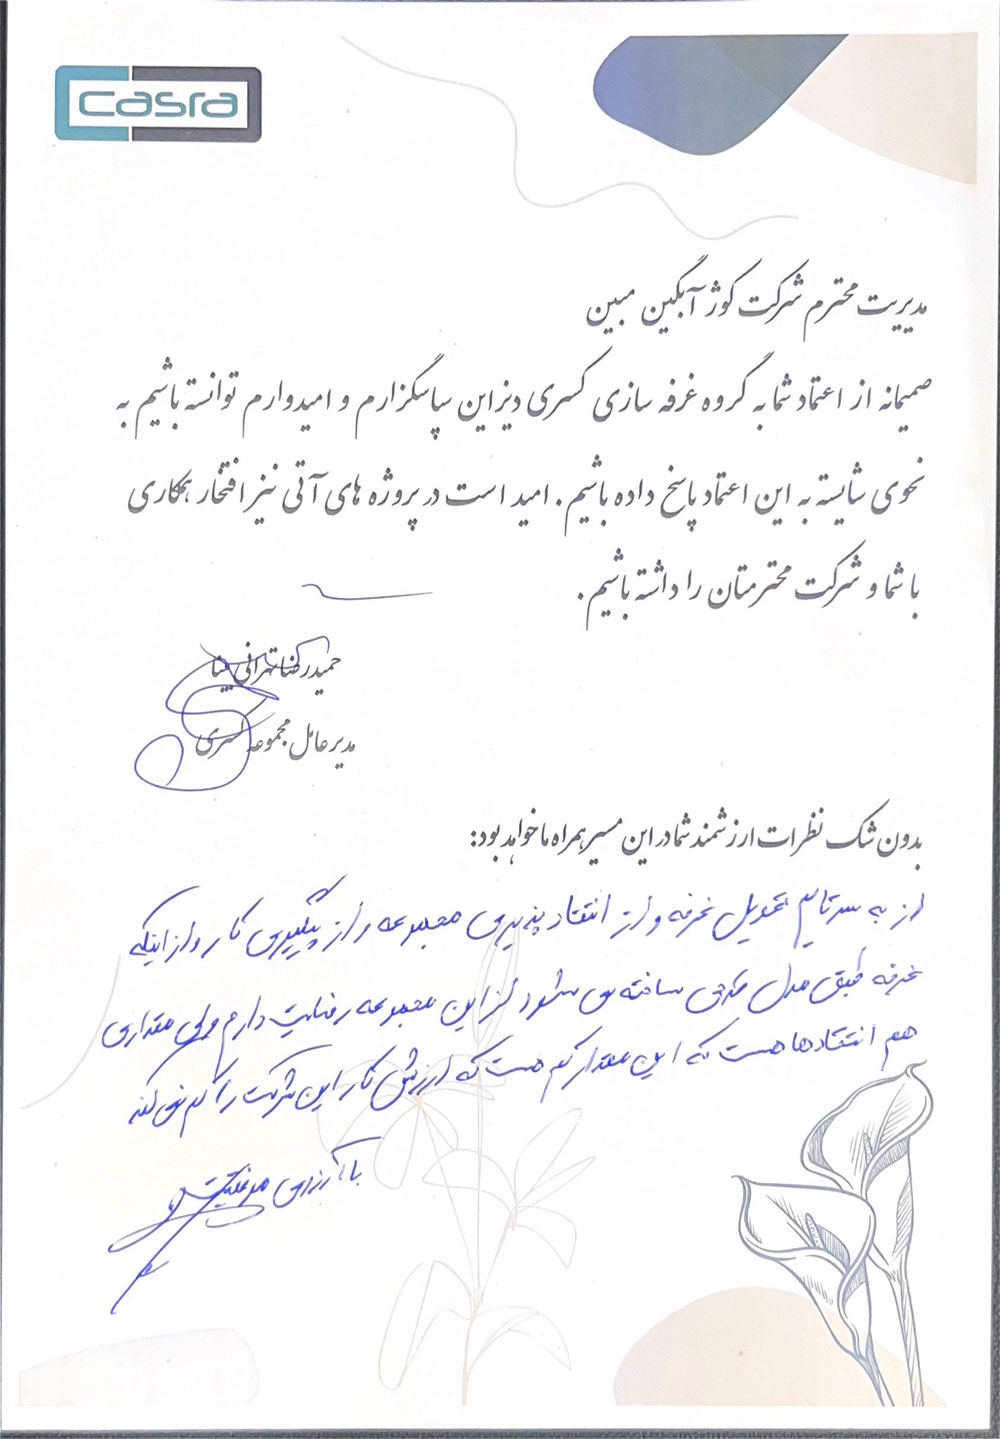 casra
مدیریت محترم شرکت کوژ آبگین مبین
صمیمانه از اعتماد شما به گروه غرفه سازی کسری دیزاین سپاسگزارم و امیدوارم توانسته باشیم به
نحوی شایسته به این اعتماد پاسخ داده باشیم. امید است در پروژه های آتی نیز افتخار همکاری
با شما و شرکت محترمتان را داشته باشیم.
حمیدرضا تهرانی مینا
مدیر عامل مجموعه کسری
بدون شک نظرات ارزشمند شما در این مسیر همراه ما خواهد بود:
از به سر تایم تحویل غرفه و از انتقاد پذیری مجموعه و از پیگیری کار و از اینکه
غرفه طبق مدل طرحی ساخته می شود از این مجموعه رضایت دارم ولی مقداری
هم انتقادها هست که این مقدار کم هست که ارزش کار این شرکت را کم نمی کند
با آرزوی موفقیت